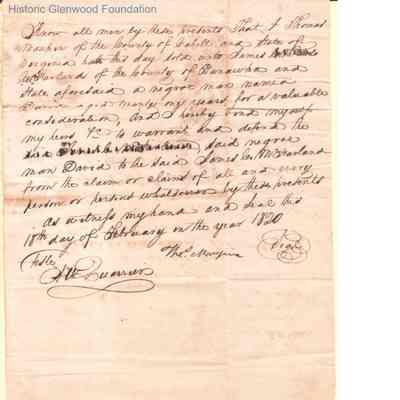 Historic Glenwood Foundation
Know all men by these presents that I Thomas
of the County of Cabell and State of
Virginia hath this day sold unto James
McFarland of the County of Kanawha and
State aforesaid a negroe man named
David aged twenty one years for a valuable
consideration, And I hereby bind myself
my heirs &c to warrant and defend the
said negroe
man David to the said James McFarland
from the claim or claims of all and every
person or persons whatsoever by these presents
as witness my hand and seal this
18th day of February in the year 1820
Teste
Quarrier
Thos.
Seal